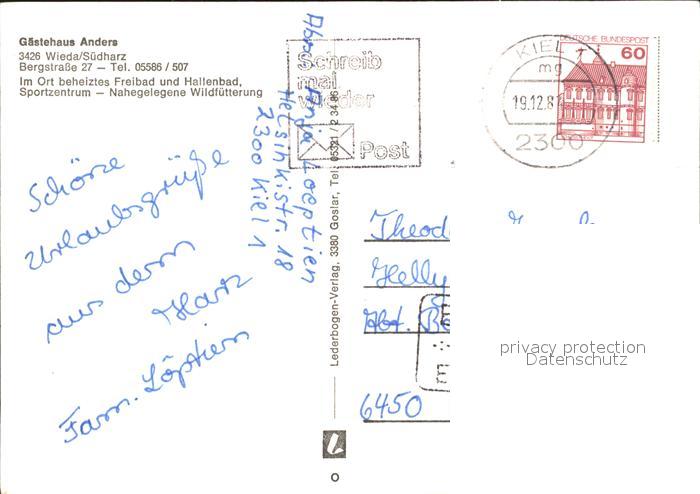 Gästehaus Anders
3426 Wieda/Südharz
Bergstraße 27 — Tel. 05586 / 507
Im Ort beheiztes Freibad und Hallenbad,
Sportzentrum — Nahegelegene Wildfütterung
Schöne
Urlaubsgrüße
aus dem
Harz
Fam. Löptien
Abs.
Anja Loeptien
Helsinkistr. 18
2300 Kiel 1
Lederbogen-Verlag, 3380 Goslar, Tel. 05321 / 2 34 86
Schreib
mal
wieder
Post
KIEL 1
mg
19.12.8
2300
DEUTSCHE BUNDESPOST
60
Theod
Helly
Abt. Be
6450
privacy protection
Datenschutz